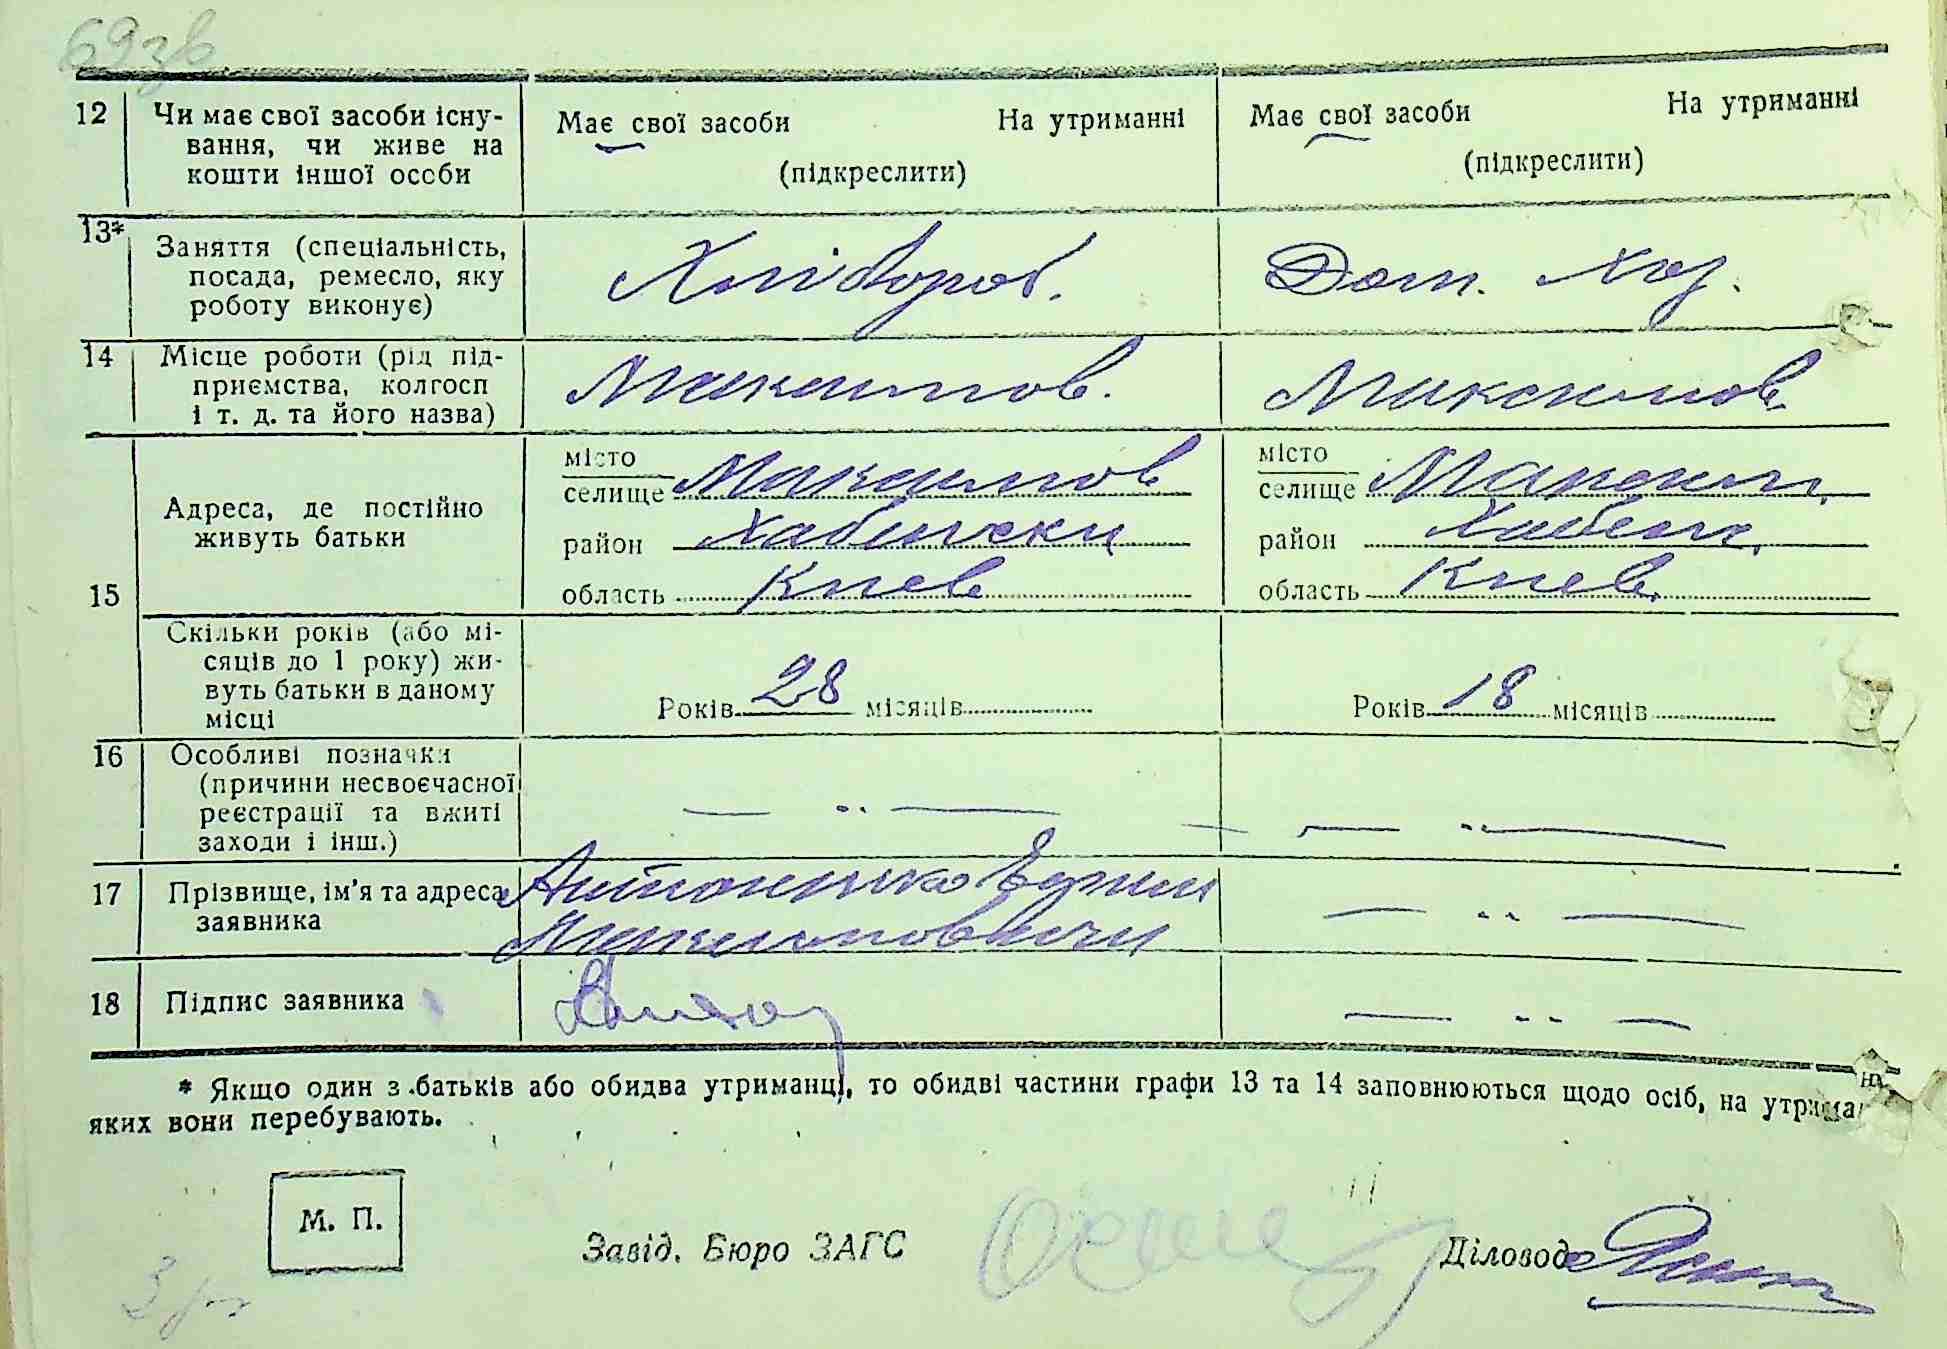 69зв
12 Чи має свої засоби існу- Має свої засоби На утриманні Має свої засоби На утриманні
вання, чи живе на
кошти іншої особи (підкреслити) (підкреслити)
13* Заняття (спеціальність,
посада, ремесло, яку Хлібороб. Дом. Хоз.
роботу виконує)
14 Місце роботи (рід під-
приємства, колгосп Максимов. Максимов.
і т. д. та його назва)
15 Адреса, де постійно
живуть батьки
місто
селище Максимов
район Хабински
область Киев
місто
селище Максим.
район Хабен.
область Киев.
Скільки років (або мі-
сяців до 1 року) жи-
вуть батьки в даному
місці
Років 28 місяців Років 18 місяців
16 Особливі позначки
(причини несвоєчасної
реєстрації та вжиті
заходи і інш.) — " — — " —
17 Прізвище, ім'я та адреса Антоненко
заявника — " —
18 Підпис заявника — " —
* Якщо один з батьків або обидва утриманці, то обидві частини графи 13 та 14 заповнюються щодо осіб, на утрима
яких вони перебувають.
М. П.
Завід. Бюро ЗАГС Діловод